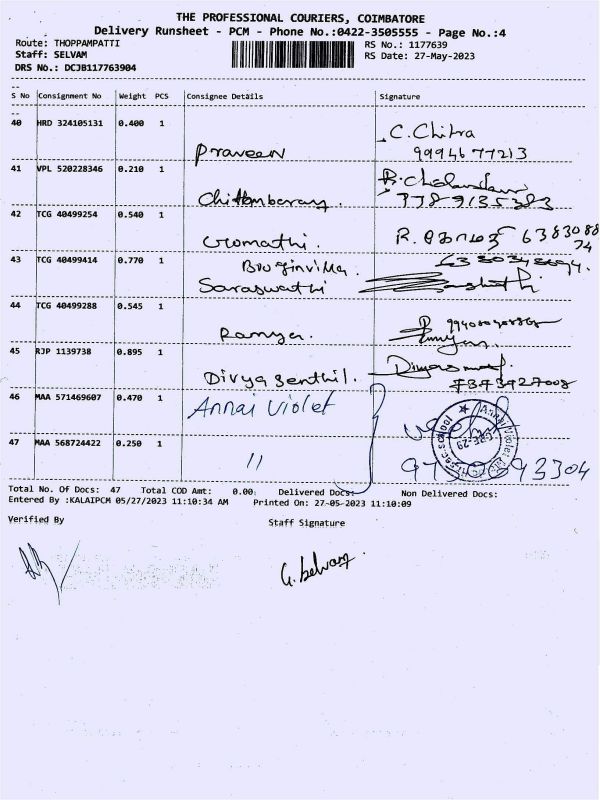 THE PROFESSIONAL COURIERS, COIMBATORE
Delivery Runsheet - PCM - Phone No.:0422-3505555 - Page No.:4
Route: THOPPAMPATTI
RS No.: 1177639
Staff: SELVAM
RS Date: 27-May-2023
DRS No.: DCJB117763904
S No Consignment No Weight PCS Consignee Details Signature
40 HRD 324105131 0.400 1 Praveen C. Chitra
9994677213
41 VPL 520228346 0.210 1 Chittambaram.
42 TCG 40499254 0.540 1 Gomathi. R. 6383088
74
43 TCG 40499414 0.770 1
Saraswathi
44 TCG 40499288 0.545 1 Ramya.
45 RJP 1139738 0.895 1 Divya Senthil.
7373927008
46 MAA 571469607 0.470 1 Annai Violet
47 MAA 568724422 0.250 1 "
Total No. Of Docs: 47 Total COD Amt: 0.00 Delivered Docs: Non Delivered Docs:
Entered By :KALAIPCM 05/27/2023 11:10:34 AM Printed On: 27-05-2023 11:10:09
Verified By Staff Signature
G. Selvam.